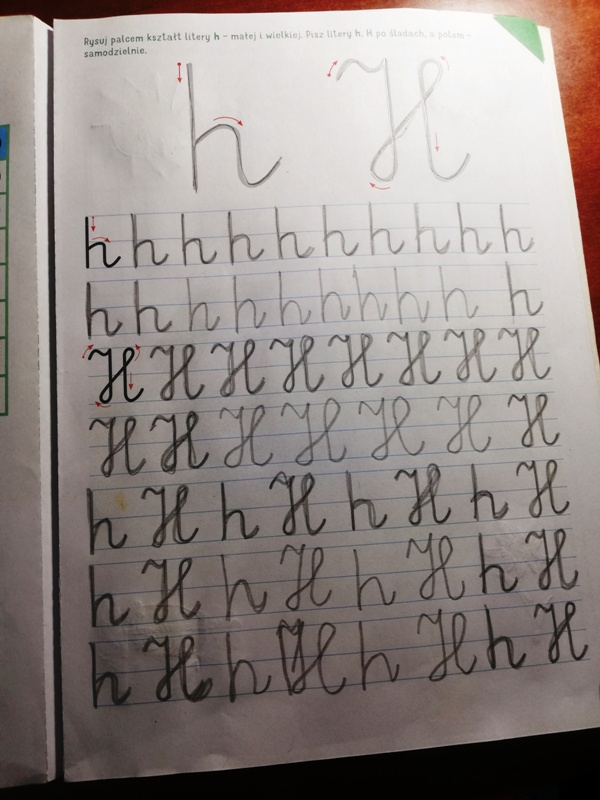 Rysuj palcem kształt litery h – małej i wielkiej. Pisz litery h, H po śladach, a potem –
samodzielnie.
h H
h h h h h h h h h h
h h h h h h h h h h
H H H H H H H H
H H H H H H H
h H h H h H h H
h H h H h H h H
h H h H h H h H